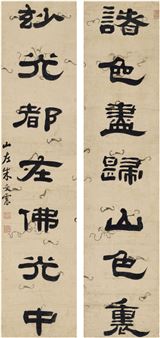 諸色盡歸山色裏
妙光都在佛光中
山左朱文震